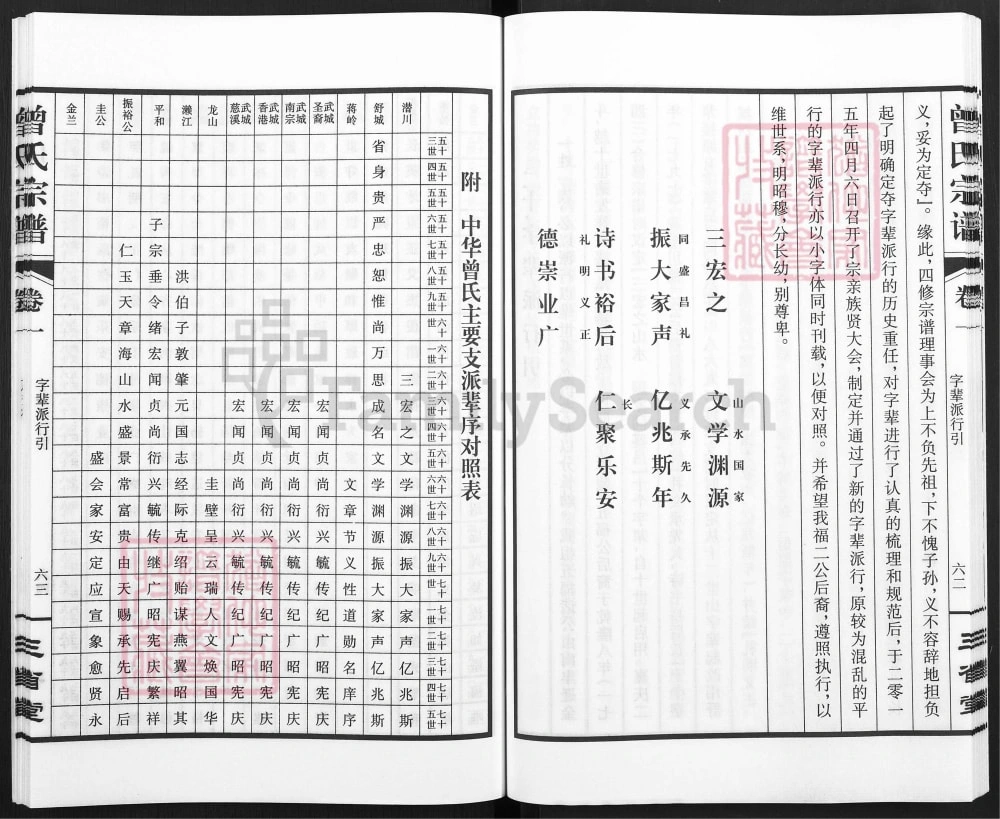 曾氏宗谱 卷一 字辈派行引 六二 三省堂
义,妥为定夺』。缘此,四修宗谱理事会为上不负先祖,下不愧子孙,义不容辞地担负
起了明确定夺字辈派行的历史重任,对字辈进行了认真的梳理和规范后,于二零一
五年四月六日召开了宗亲族贤大会,制定并通过了新的字辈派行,原较为混乱的平
行的字辈派行亦以小字体同时刊载,以便对照。并希望我福二公后裔,遵照执行,以
维世系,明昭穆,分长幼,别尊卑。
山水国家
三宏之 文学渊源
同盛昌礼 义承先久
振大家声 亿兆斯年
长
诗书裕后 仁聚乐安
礼明义正
德崇业广
附 中华曾氏主要支派辈序对照表
五十三世 五十四世 五十五世 五十六世 五十七世 五十八世 五十九世 六十世 六十一世 六十二世 六十三世 六十四世 六十五世 六十六世 六十七世 六十八世 六十九世 七十世 七十一世 七十二世 七十三世 七十四世 七十五世
潜川 三宏之文学渊源振大家声亿兆斯
舒城 省身贵严忠恕惟尚万思成名文学渊源振大家声亿兆斯
蒋岭 文章节义性道勋名庠序
武城圣裔 宏闻贞尚衍兴毓传纪广昭宪庆
武城南宗 宏闻贞尚衍兴毓传纪广昭宪庆
武城香港 宏闻贞尚衍兴毓传纪广昭宪庆
武城慈溪 宏闻贞尚衍兴毓传纪广昭宪庆
龙山 圭璧呈云瑞人文焕国华
濑江 洪伯子敦肇元国志经际克绍贻谋燕翼昭其
平和 子宗垂令绪宏闻贞尚衍兴毓传继广昭宪庆繁祥
振裕公 仁玉天章海山水盛景常富贵由天赐承先启后
圭公 盛会家安定应宣象愈贤永
金兰
曾氏宗谱 卷一 字辈派行引 六三 三省堂
FamilySearch